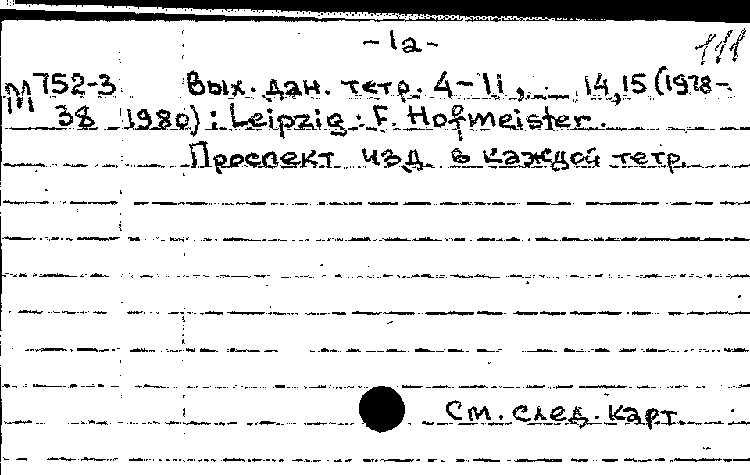 -1а-
111
М 752-3 Вых. дан. тетр. 4-11, 14,15 (1978-
38 1980) : Leipzig : F. Hofmeister.
Проспект изд. в каждой тетр.
См. след. карт.